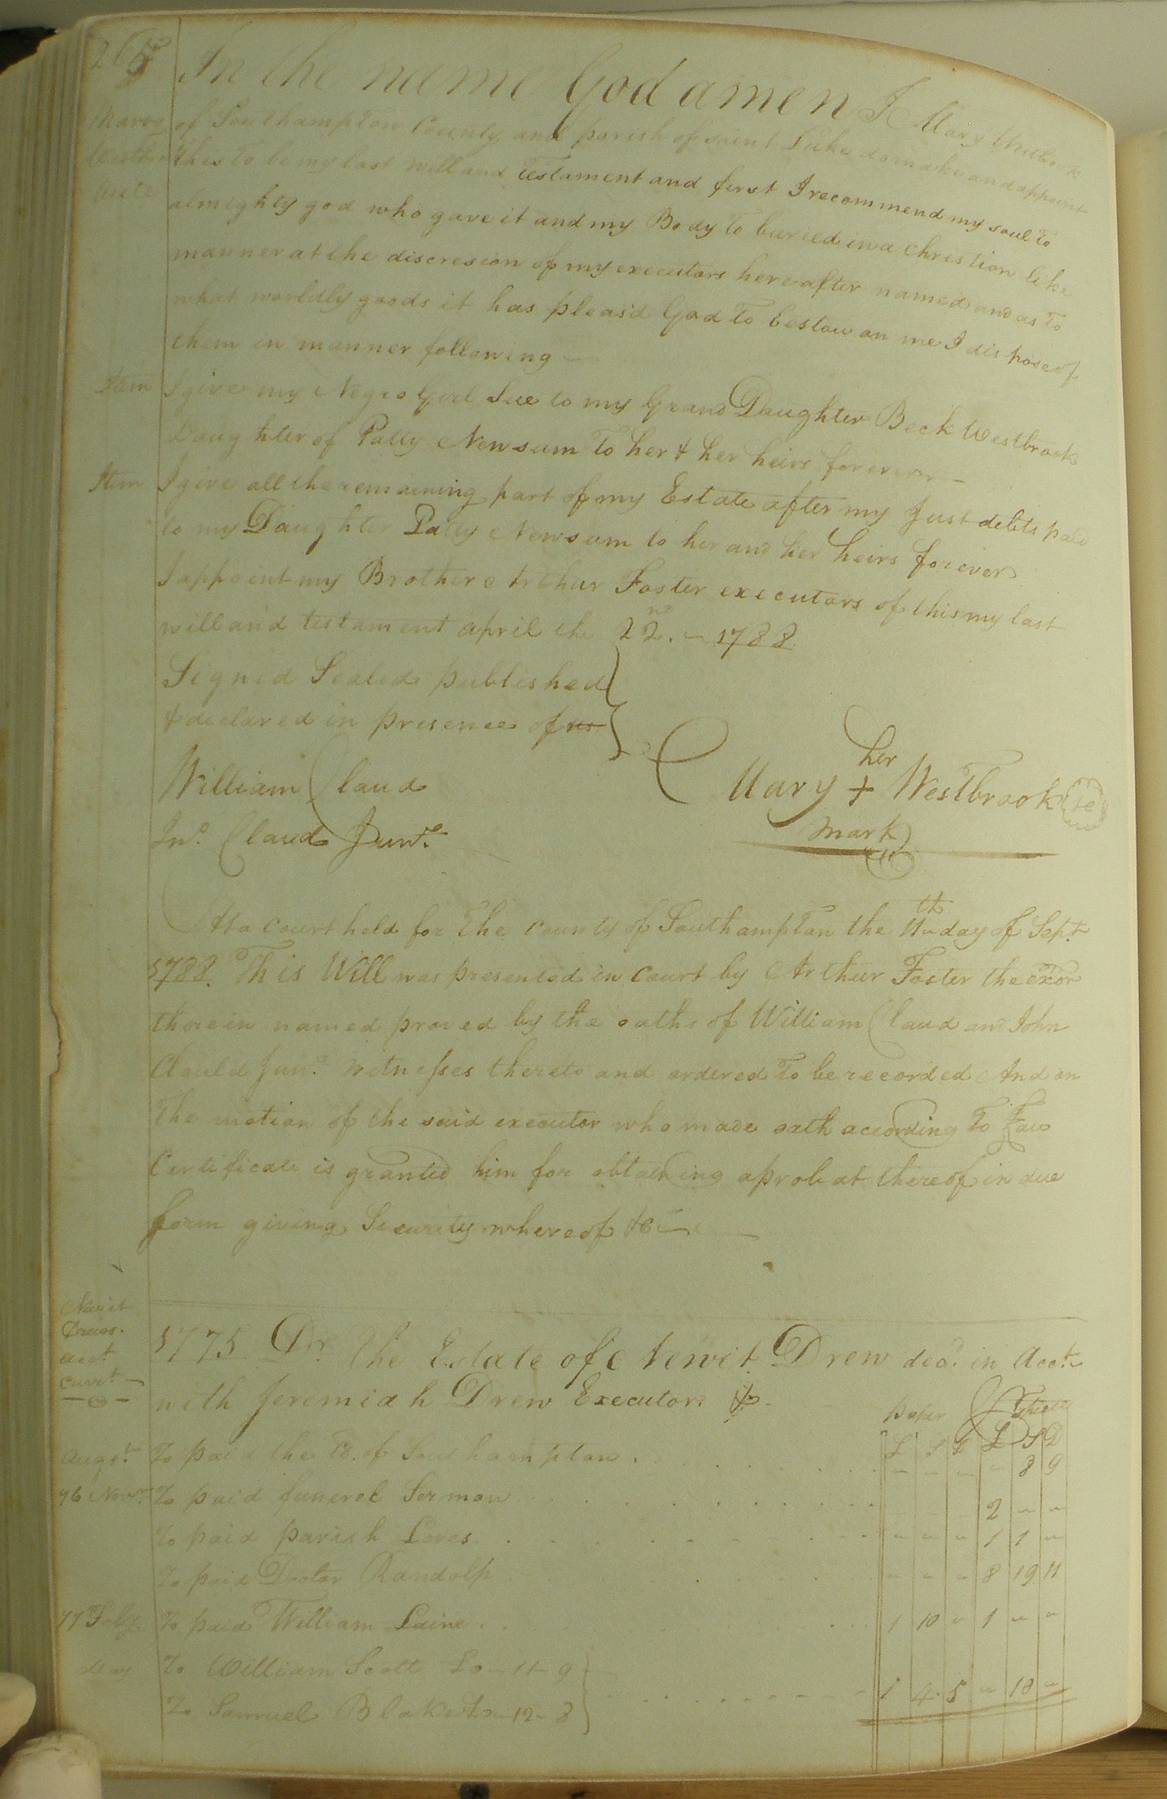 In the name God amen I Mary Westbrook
Mary of Southampton County and parish of Saint Luke do make and appoint
this to be my last will and Testament and first I recommend my soul to
almighty god who gave it and my Body to buried in a Christion like
manner at the discresion of my executors hereafter named and as to
what worldly goods it has pleasd God to bestow on me I dispose of
them in manner following
Item I give my Negro Girl Sue to my Grand Daughter Beck Westbrook
Daughter of Patty Newsum to her & her heirs forever
Item I give all the remaining part of my Estate after my Just debts paid
to my Daughter Patty Newsum to her and her heirs forever
I appoint my Brother Arthur Foster executors of this my last
will and testament april the 22nd. - 1788
Signed Sealed published
& declared in presence of us
William Claud
Jno. Claud Junr.
her
Mary + Westbrook
mark
At a Court held for The County of Southampton the 11th day of Sept.
1788. This Will was presented in Court by Arthur Foster the exor
therein named proved by the oaths of William Claud and John
Clauld Junr. Witnesses thereto and ordered To be recorded And on
the motion of the said executor who made oath according To Law
Certificate is granted him for obtaining a probat thereof in due
form giving Security whereof &c
Newit
Drews
acct.
Currt.
1775 Dr. The Estate of Newit Drew decd. in Acct.
with Jeremiah Drew Executor
paper
£ S D £ S D
Augst. To paid the of Southampton - - - - 8 9
76 Novr. To paid funeral Sermon 2 - -
To paid parish Leves - - - 1 1 -
To paid Doctor Randolph - - - 8 19 11
77 To paid William Laine 1 10 - 1 - -
May To William Scott £0-11-9
To Samuel Blake 12-8 1 4 5 - 18 -